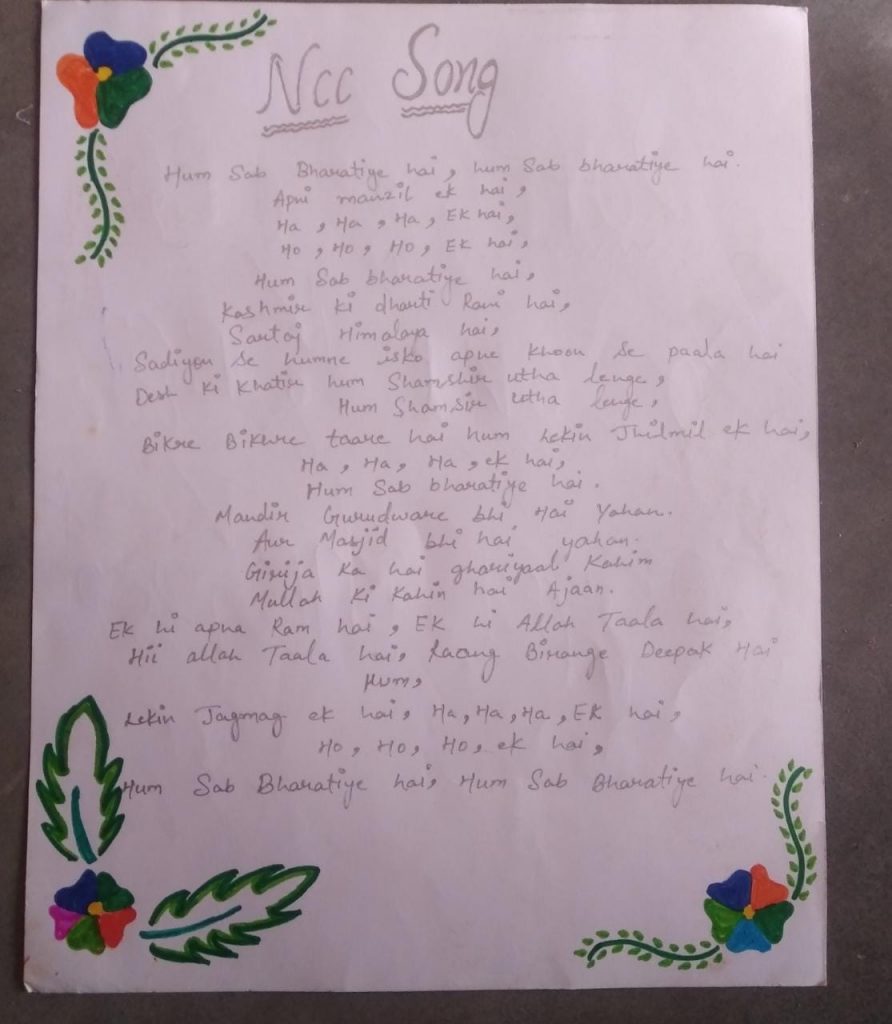 Ncc Song
Hum Sab Bharatiye hai, hum Sab bharatiye hai.
Apni manzil ek hai,
Ha, Ha, Ha, Ek hai,
Ho, Ho, Ho, Ek hai,
Hum Sab bharatiye hai,
Kashmir ki dharti Rani hai,
Sartaj Himalaya hai,
Sadiyon se humne isko apne khoon se paala hai
Desh ki khatir hum Shamshir utha lenge,
Hum Shamsir utha lenge,
Bikre Bikhre taare hai hum Lekin Jhilmil ek hai,
Ha, Ha, Ha, ek hai,
Hum Sab bharatiye hai.
Mandir Gurudware bhi Hai Yahan.
Aur Masjid bhi hai yahan.
Girija ka hai ghariyaal Kahim
Mullah Ki Kahin hai Ajaan.
Ek hi apna Ram hai, Ek hi Allah Taala hai,
Hii allah Taala hai, Raang Birange Deepak Hai
Hum,
Lekin Jagmag ek hai, Ha, Ha, Ha, Ek hai,
Ho, Ho, Ho, ek hai,
Hum Sab Bharatiye hai, Hum Sab Bharatiye hai.